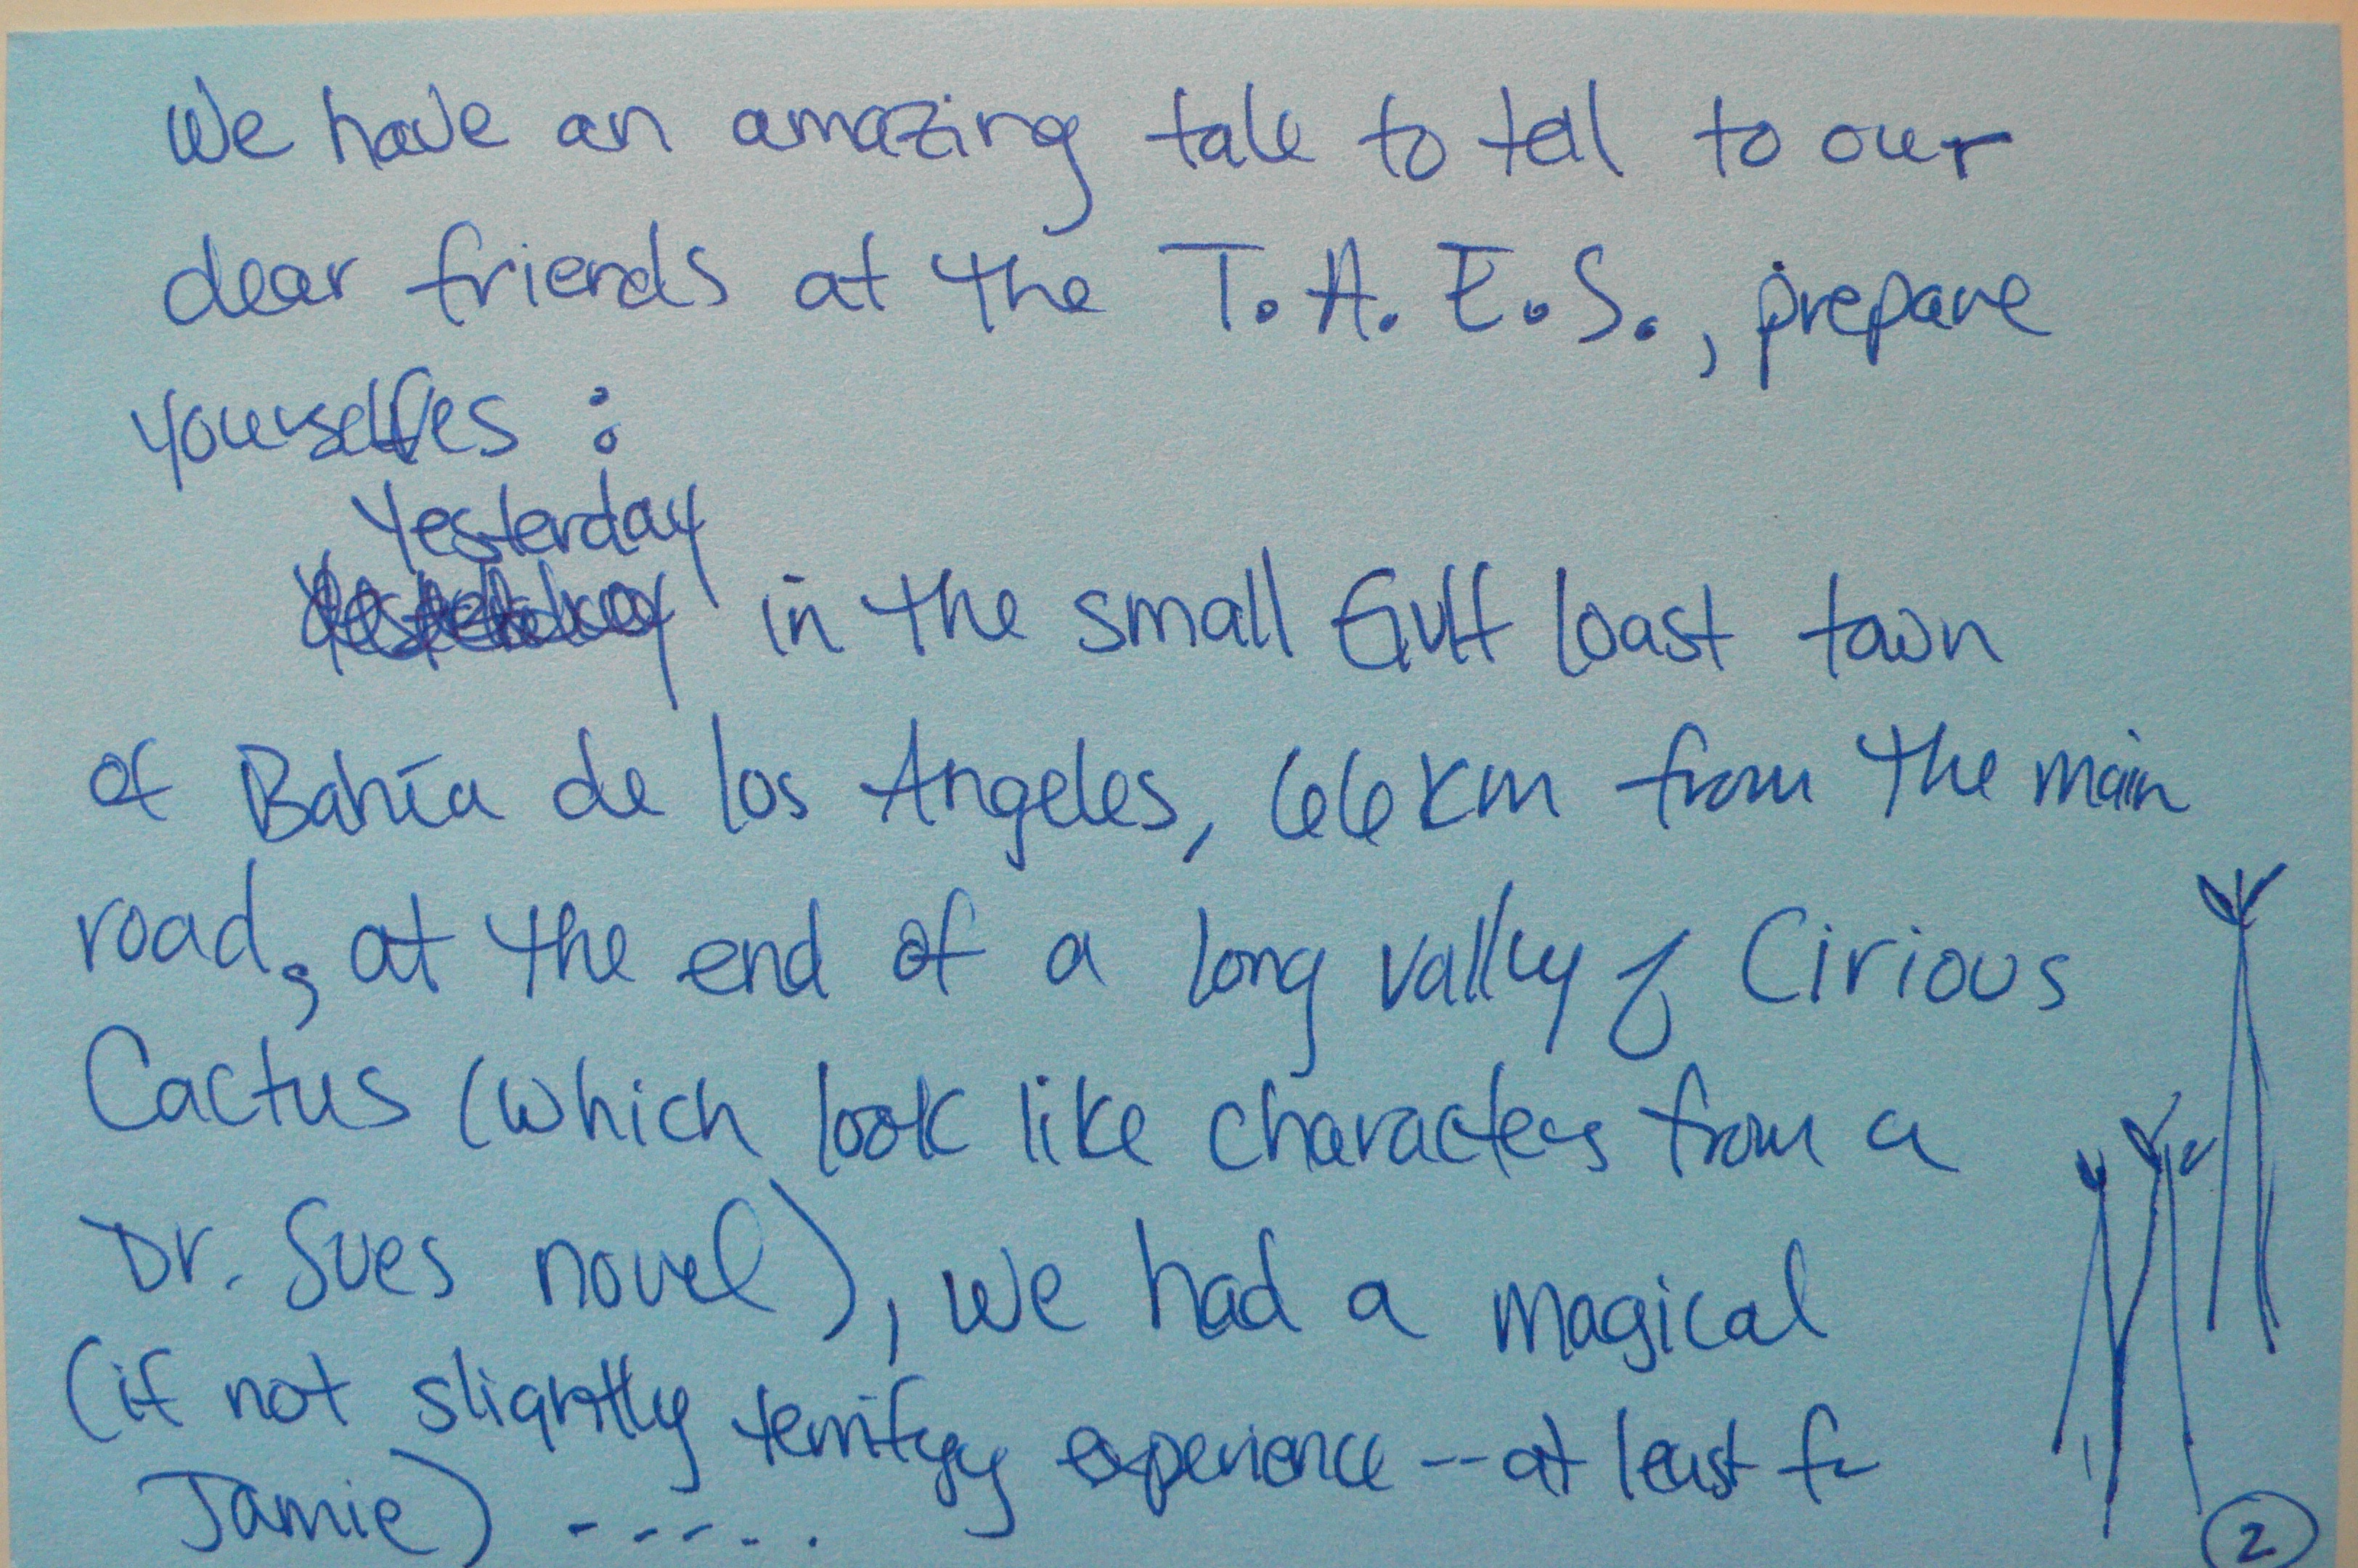 We have an amazing tale to tell to our
dear friends at the T.A.E.S., prepare
yourselves :
Yesterday
in the small Gulf Coast town
of Bahía de los Angeles, 66 km from the main
road, at the end of a long valley of Cirious
Cactus (which look like characters from a
Dr. Sues novel), we had a magical
(if not slightly terrifyg experience -- at least for
Jamie) - - - - . .
2